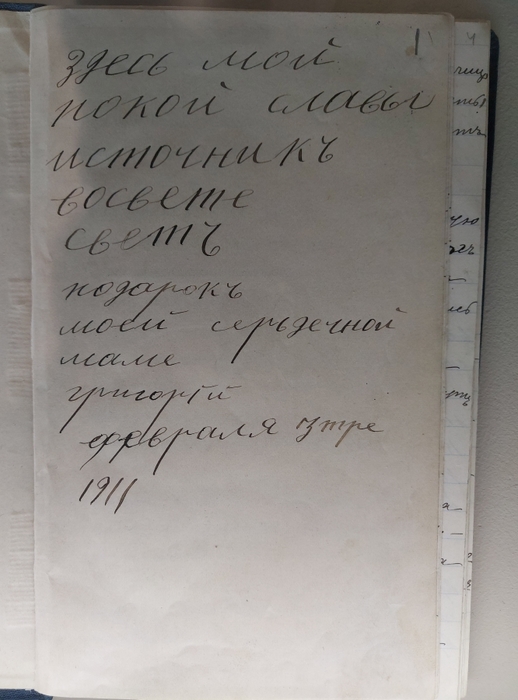 1
здесь мой
покой славы
источникъ
восвете
светъ
подарокъ
моей серьдечной
маме
григорiй
февраля 3 тре
1911